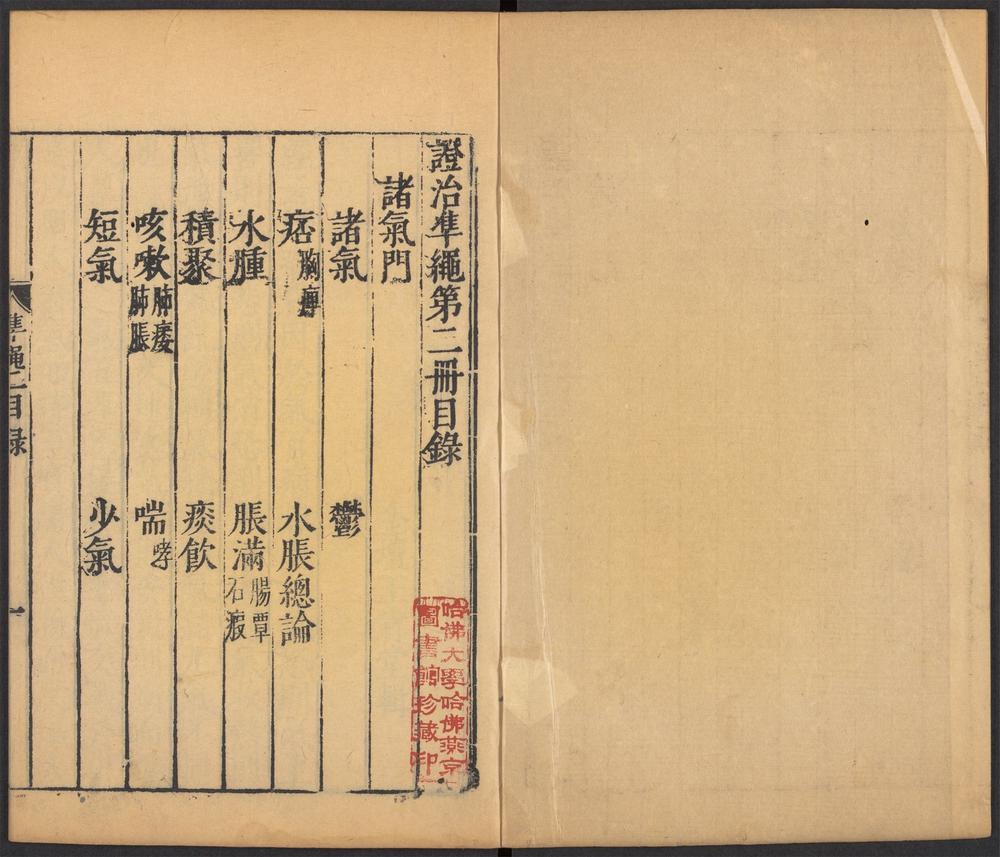 證治準繩第二冊目錄
諸氣門
諸氣 鬱
痞 胸痹 水脹總論
水腫 脹滿 腸覃 石瘕
積聚 痰飲
咳嗽 肺痿 肺脹 喘 哮
短氣 少氣
準繩二目録
一
哈佛大學哈佛燕京
圖書館珍藏印